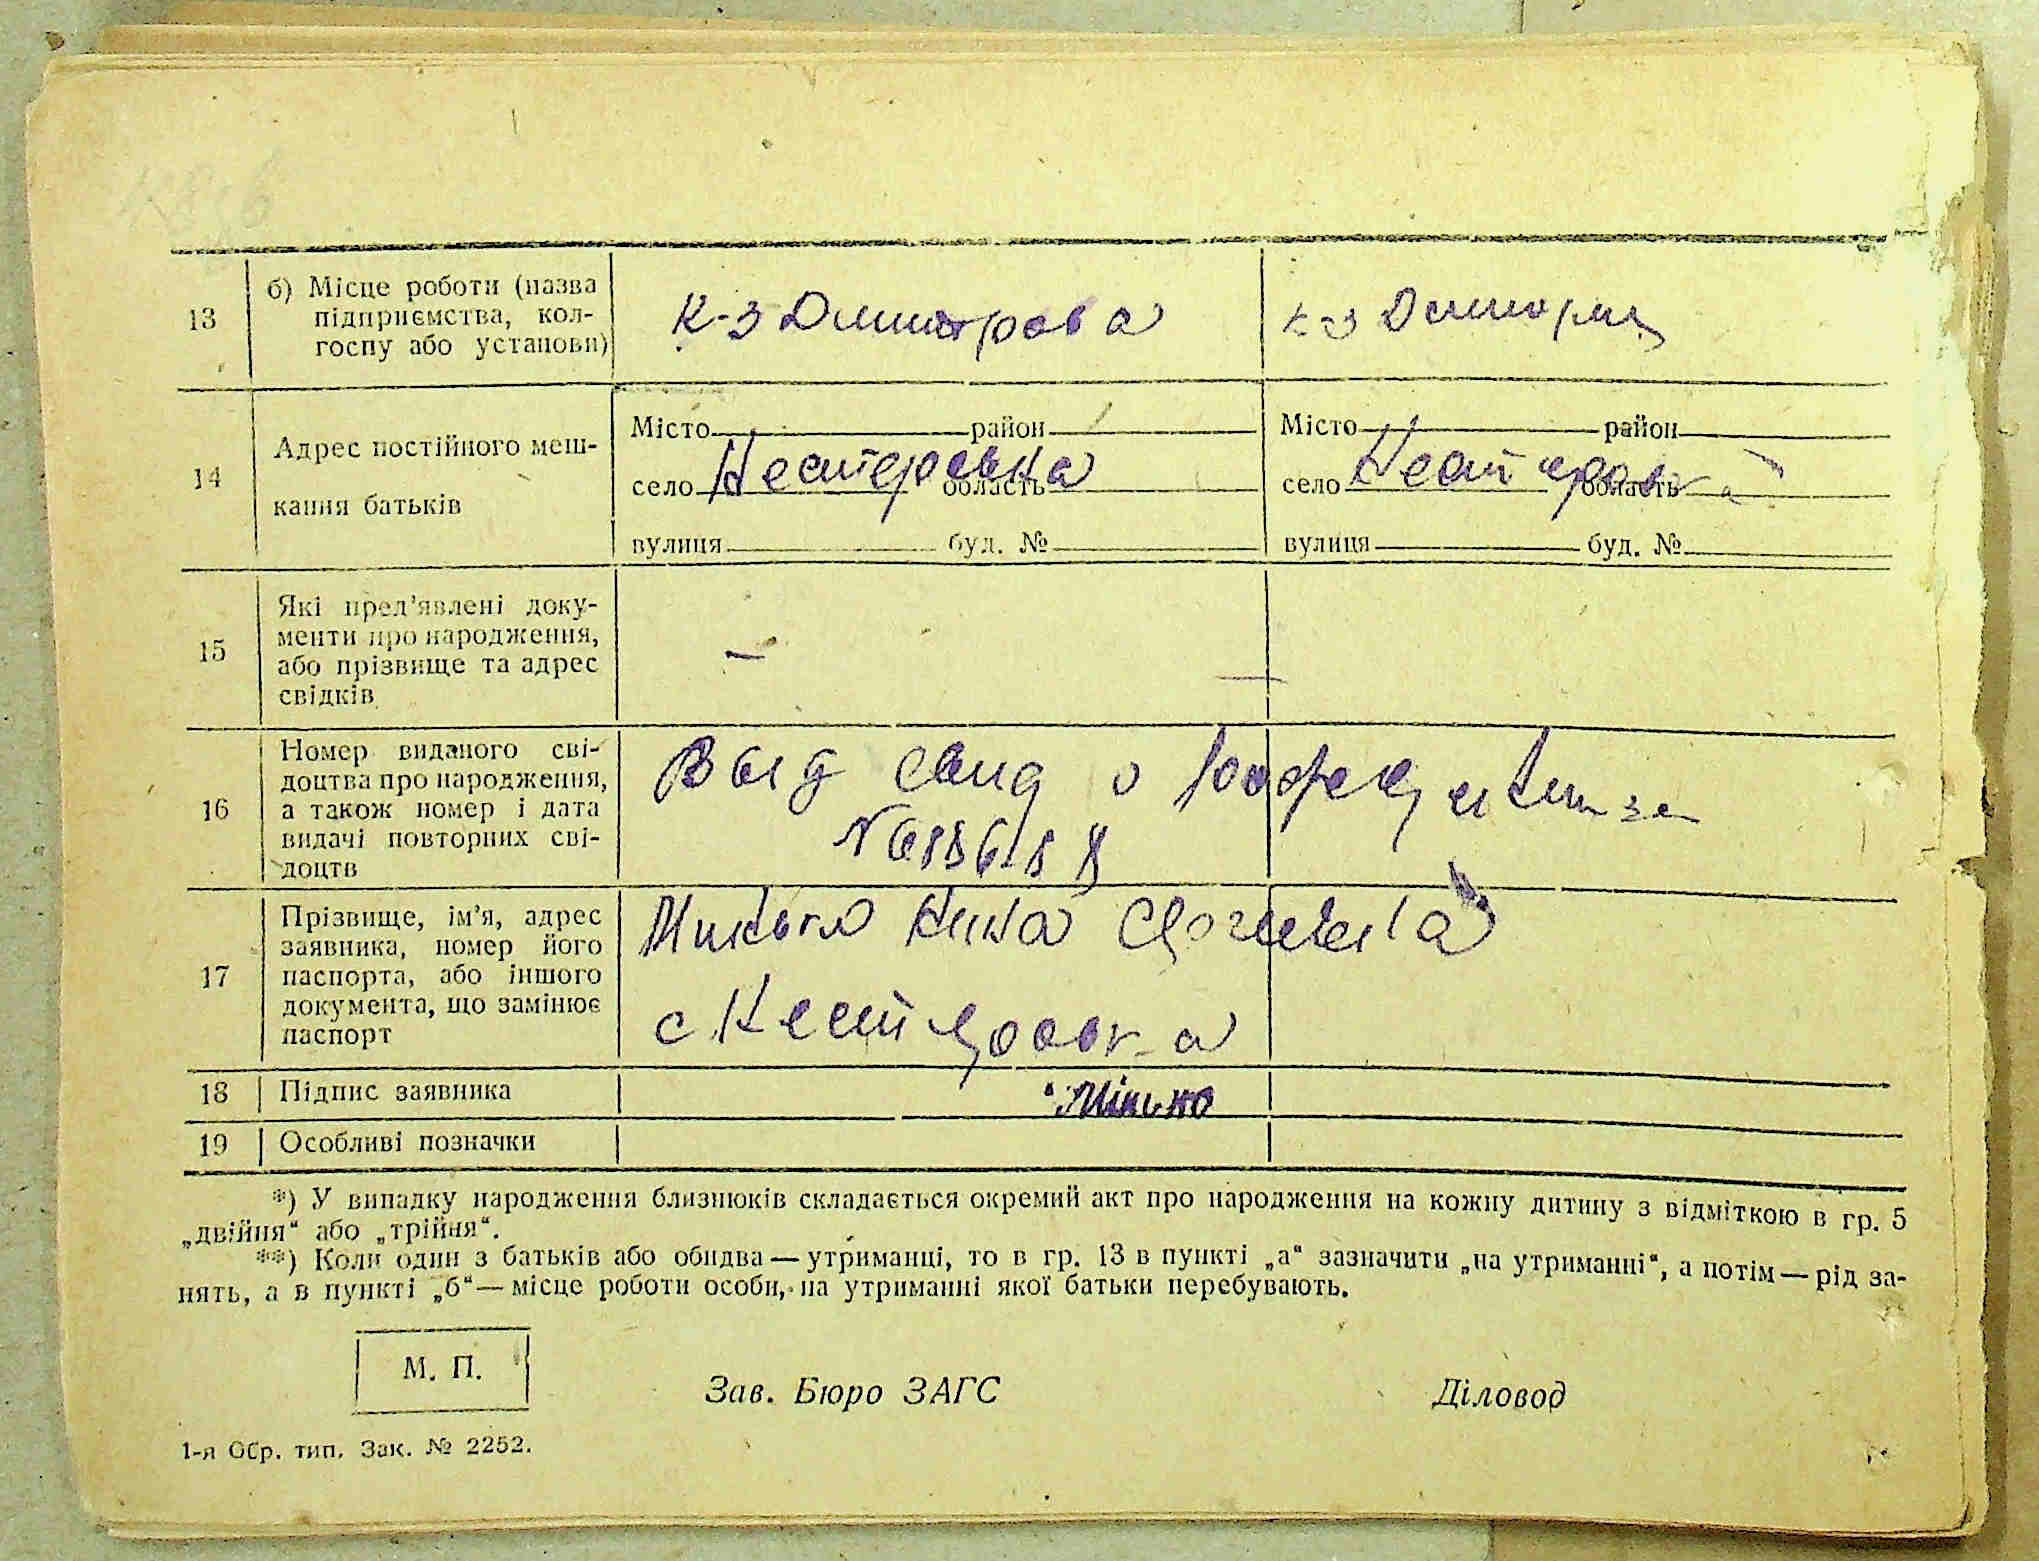 13
б) Місце роботи (назва
підприємства, кол-
госпу або установи)
К-з Димитрова
к-з Димитрова
14
Адрес постійного меш-
кання батьків
Місто район
село Нестеровка область
вулиця буд. №
Місто район
село Нестеровка область
вулиця буд. №
15
Які пред'явлені доку-
менти про народження,
або прізвище та адрес
свідків
—
—
16
Номер виданого сві-
доцтва про народження,
а також номер і дата
видачі повторних сві-
доцтв
Выд свид о за
17
Прізвище, ім'я, адрес
заявника, номер його
паспорта, або іншого
документа, що замінює
паспорт
с Нестеровка
18
Підпис заявника
Мінько
19
Особливі позначки
*) У випадку народження близнюків складається окремий акт про народження на кожну дитину з відміткою в гр. 5
„двійня“ або „трійня“.
**) Коли один з батьків або обидва — утриманці, то в гр. 13 в пункті „а“ зазначити „на утриманні“, а потім — рід за-
нять, а в пункті „б“ — місце роботи особи, на утриманні якої батьки перебувають.
М. П.
Зав. Бюро ЗАГС
Діловод
1-я Обр. тип. Зак. № 2252.